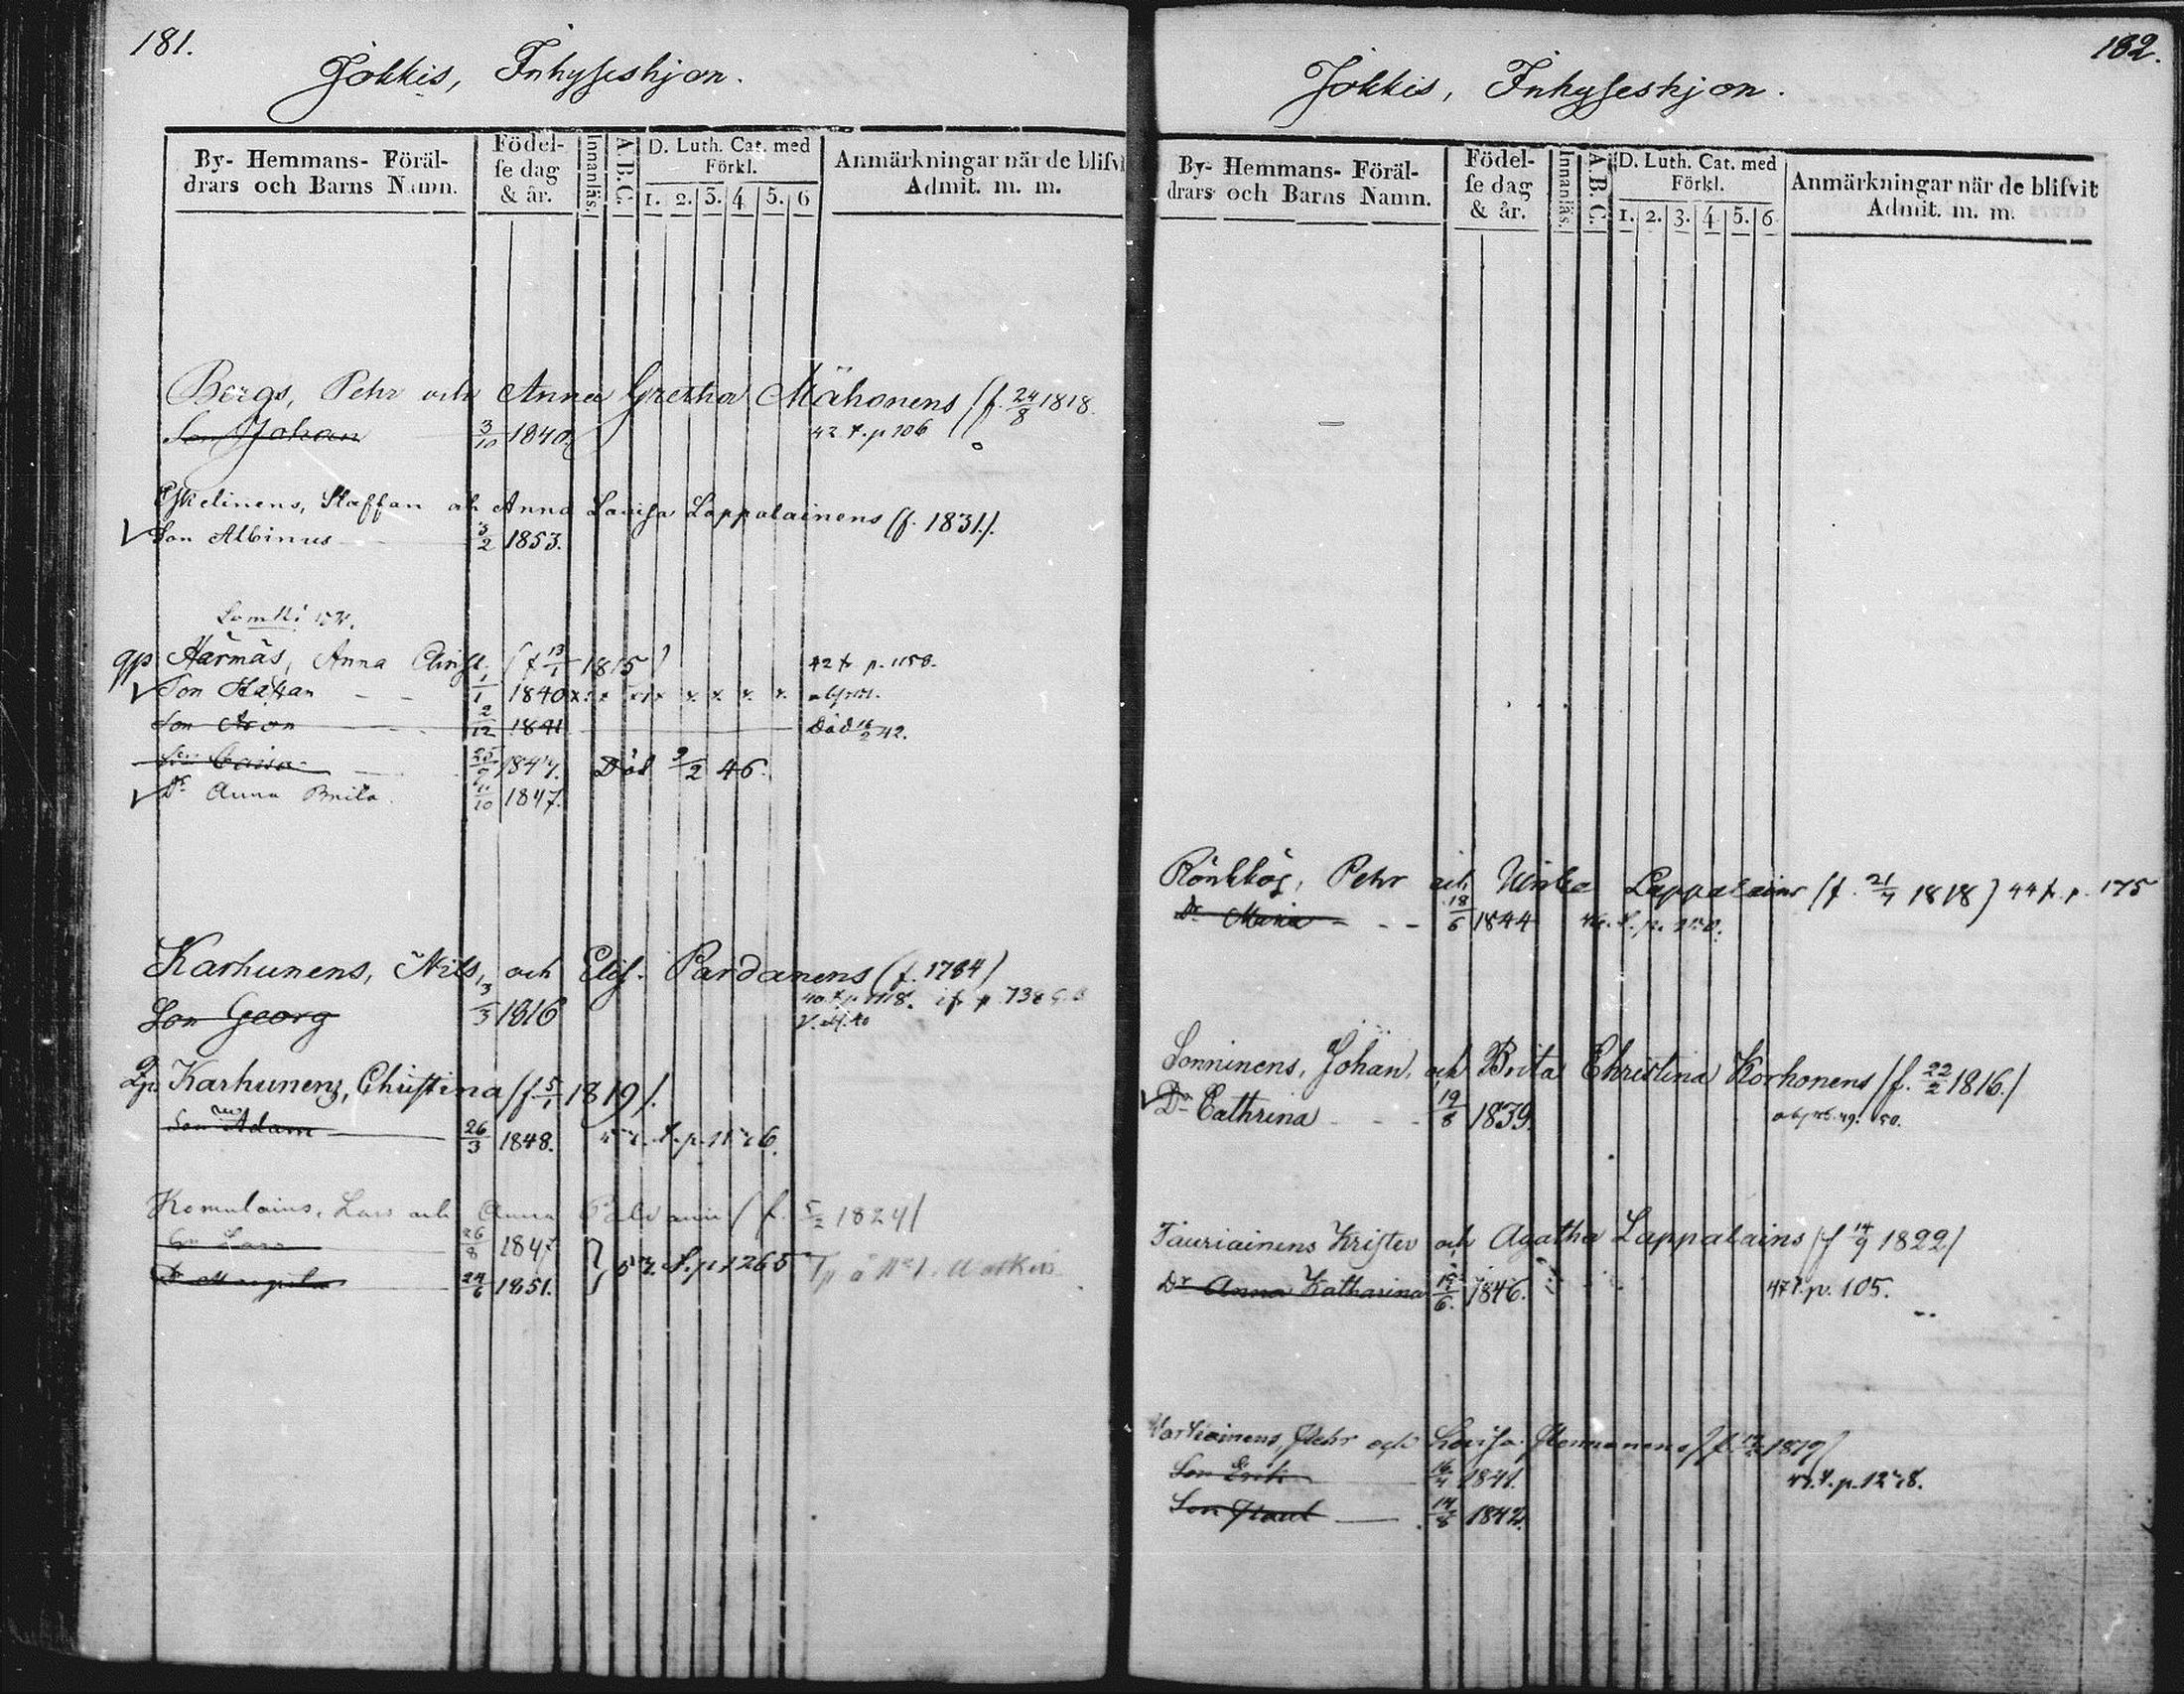 181.
Jokkis, Inhyseshjon.
By- Hemmans- Föräl-
drars och Barns Namn.
Födel-
se dag
& år.
Innanläs.
A.B.C.
D. Luth. Cat. med
Förkl.
1. 2. 3. 4 5. 6
Anmärkningar när de blifvi
Admit. m. m.
Bergs, Pehr och Anna Gretha Mähonens (f. 24/8 1818.
Son Johan 3/10 1840. 42 f. p 206
Eskelinens, Staffan och Anna Lovisa Lappalainens (f. 1831).
Son Albinus 3/2 1853.
Härmäs, Anna Christ. (f 13/1 1815)
Son Håkan 1/1 1840
Son Aron 2/12 1841 Död 16/2 42.
Caisa 25/9 1844. Död 9/2 46.
Dr Anna Brita 11/10 1847.
Karhunens, Nils, och Elis. Pardanens (f. 1784)
Son Georg 3/3 1816
Karhunens, Christina (f. 5/1 1819).
Son Adam 26/3 1848.
Komulains, Lars och Anna (f. 5/2 1824)
Son Lars 26/8 1847
Dr 24/6 1851. f. p 1265
182.
Jokkis, Inhyseshjon.
By- Hemmans- Föräl-
drars och Barns Namn.
Födel-
se dag
& år.
Innanläs.
A.B.C.
D. Luth. Cat. med
Förkl.
1. 2. 3. 4 5. 6
Anmärkningar när de blifvit
Admit. m. m.
Rönkkös, Pehr och Ulrika Lappalains (f. 21/7 1818) 44 f. p. 175
Dr Maria 18/6 1844
Sonninens, Johan, och Brita Christina Korhonens (f. 22/2 1816.)
Dr Cathrina 19/8 1839.
Tauriainens Krister och Agatha Lappalains (f 14/9 1822)
Dr Anna Katharina 15/6. 1846. 47 f. p. 105.
Vartiainens, Pehr och Lovisa 1819)
Son Erik 16/4 1841.
Son Paul 14/8 1842.